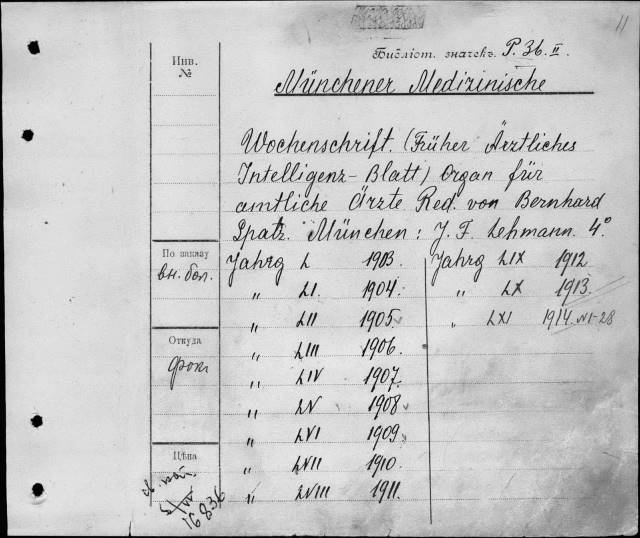 11
Библіот. значекъ P. 36. II.
Инв.
№
Münchener Medizinische
Wochenschrift. (Früher Ärztliches
Intelligenz-Blatt) Organ für
amtliche Ärzte Red. von Bernhard
Spatz. München: J. F. Lehmann. 4°.
По заказу
вн. бол.
Откуда
Цѣна
16836
Jahrg L 1903.
„ LI. 1904.
„ LII 1905
„ LIII 1906.
„ LIV 1907.
„ LV 1908
„ LVI 1909.
„ LVII 1910.
„ LVIII 1911.
Jahrg LIX 1912
„ LX 1913.
„ LXI 1914. №1-28